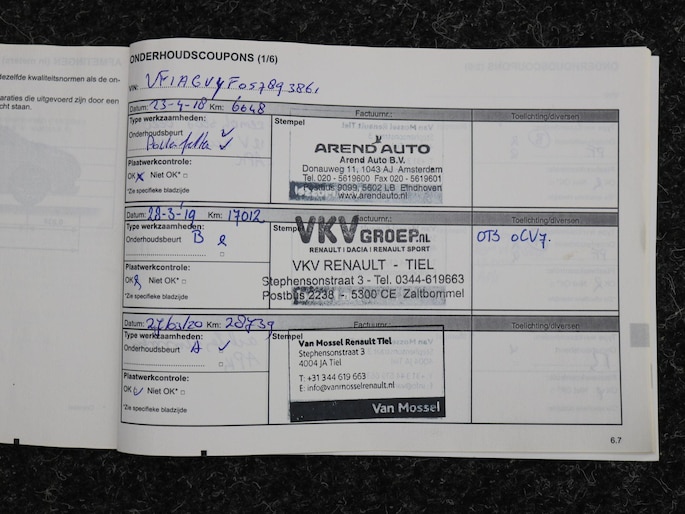 dezelfde kwaliteitsnormen als de on-
araties die uitgevoerd zijn door een
cht staan.
ONDERHOUDSCOUPONS (1/6)
VIN:
Datum: 23-4-18 Km: 6648
Factuurnr.:
Toelichting/diversen
Type werkzaamheden:
Onderhoudsbeurt ✓
Stempel
AREND AUTO
Arend Auto B.V.
Donauweg 11, 1043 AJ Amsterdam
Tel. 020 - 5619600 Fax 020 - 5619601
Postbus 9099, 5602 LB Eindhoven
www.arendauto.nl
Plaatwerkcontrole:
OK Niet OK* □
*Zie specifieke bladzijde
Datum: 28-3-'19 Km: 17012
Factuurnr.:
Toelichting/diversen
Type werkzaamheden:
Onderhoudsbeurt B
Stempel
VKV GROEP.NL
RENAULT | DACIA | RENAULT SPORT
VKV RENAULT - TIEL
Stephensonstraat 3 - Tel. 0344-619663
Postbus 2238 - 5300 CE Zaltbommel
OTS OCV7.
Plaatwerkcontrole:
OK Niet OK* □
*Zie specifieke bladzijde
Datum: 27/03/20 Km: 28739
Factuurnr.:
Toelichting/diversen
Type werkzaamheden:
Onderhoudsbeurt A ✓
Stempel
Van Mossel Renault Tiel
Stephensonstraat 3
4004 JA Tiel
T: +31 344 619 663
E: info@vanmosselrenault.nl
Van Mossel
Plaatwerkcontrole:
OK ✓ Niet OK* □
*Zie specifieke bladzijde
6.7